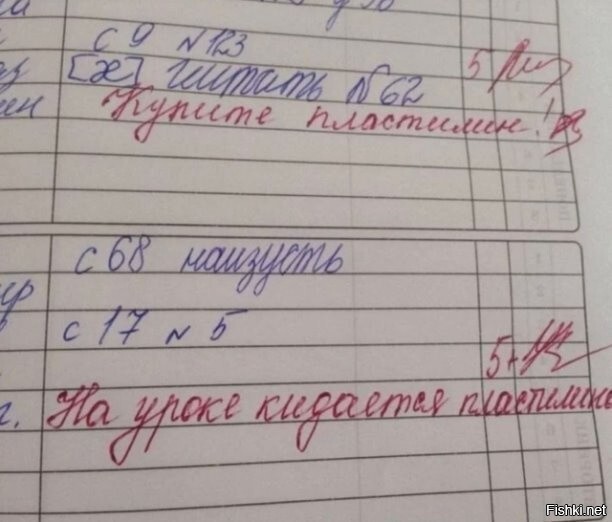 с 9 №123
[æ] читать №62 5
Купите пластилин!
с 68 наизусть
с 17 № 5
5+
г. На уроке кидается пластилино
Fishki.net